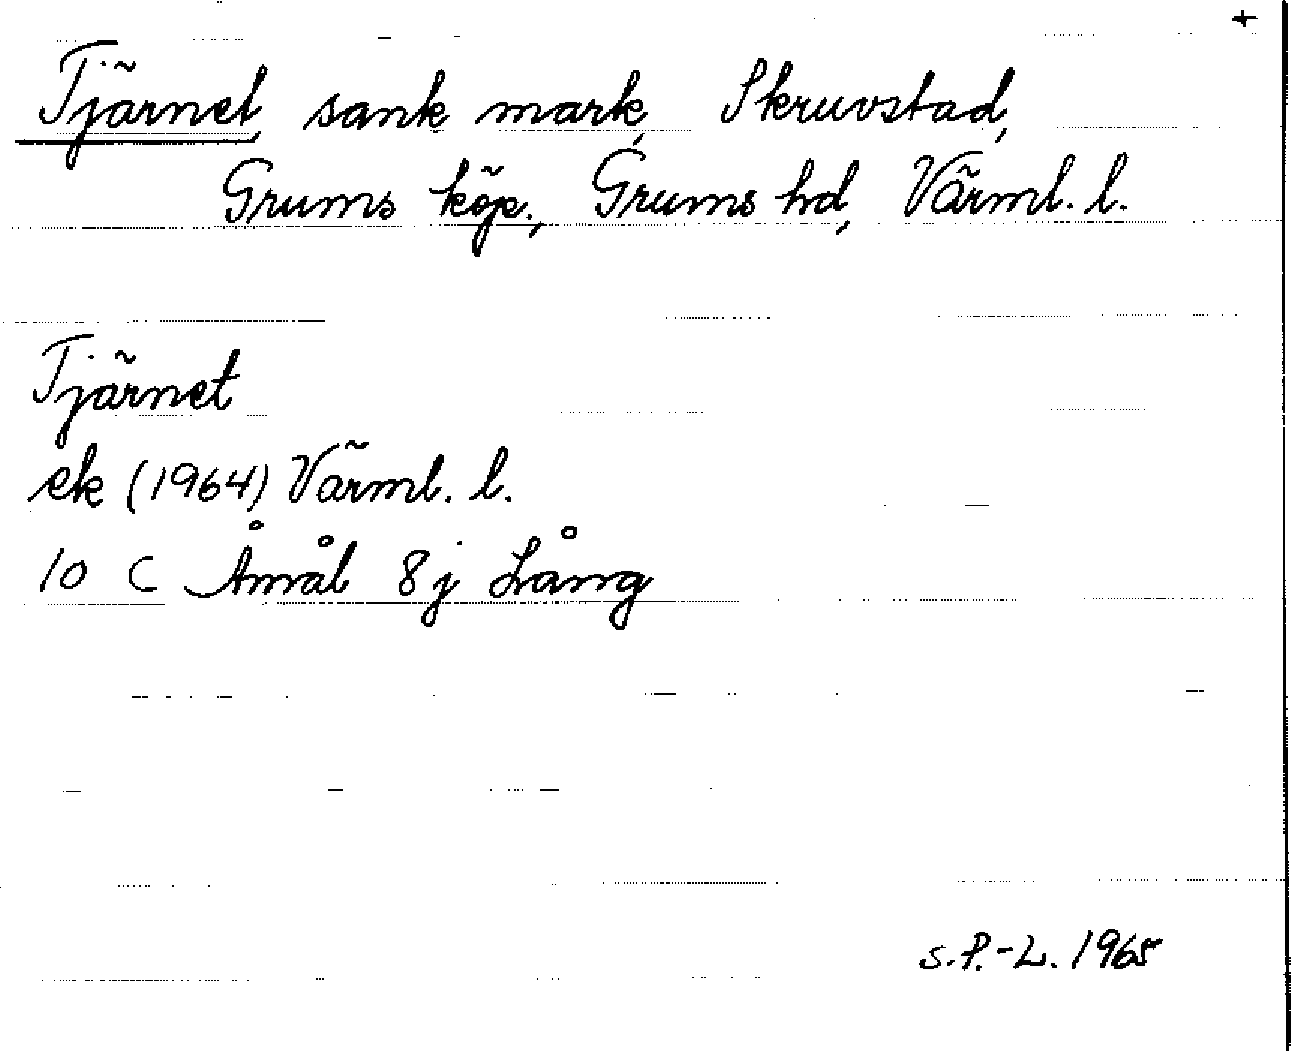 +
Tjärnet, sank mark, Skruvstad,
Grums köp., Grums hd, Värml. l.
Tjärnet
ek (1964) Värml. l.
10 C Åmål 8j Lång
S.P.-L. 1965